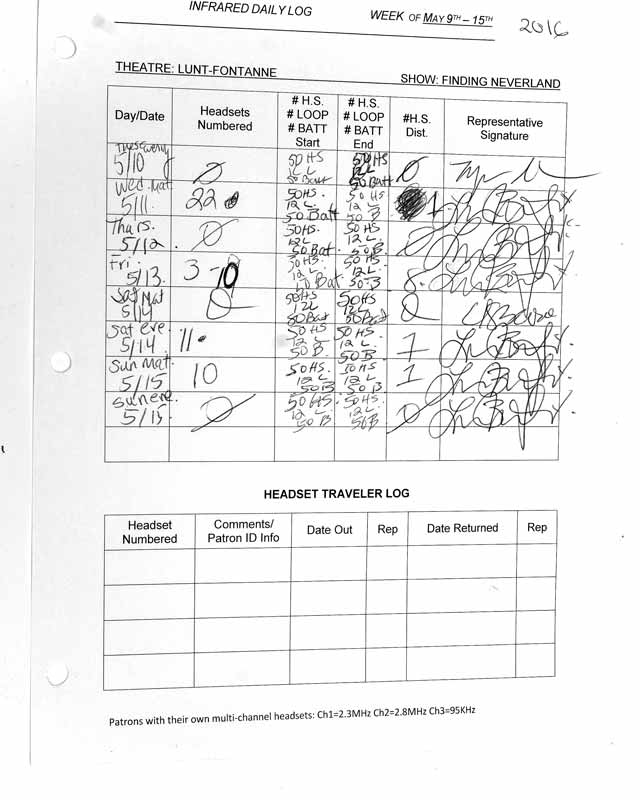 INFRARED DAILY LOG
WEEK OF MAY 9TH – 15TH
2016
THEATRE: LUNT-FONTANNE
SHOW: FINDING NEVERLAND
Day/Date
Headsets Numbered
# H.S. # LOOP # BATT Start
# H.S. # LOOP # BATT End
#H.S. Dist.
Representative Signature
5/10 0 50 HS 12 L 50 Batt 50 HS 12 L 50 Batt 0
Wed Mat 5/11 22 50 HS. 12 L. 50 Batt 50 HS 12 L 50 B 1
Thurs. 5/12. 0 50 HS. 12 L. 50 Bat. 50 HS. 12 L. 50 B.
Fri. 5/13. 3-10 50 HS. 12 L 50 HS. 12 L. 50 B 8.
Sat Mat 5/14 0 50 HS 12 L 50 Bat 50 HS 12 L 50 Batt 0
Sat eve. 5/14. 11. 50 HS 12 L 50 B. 50 HS. 12 L. 50 B 1
Sun Mat. 5/15 10 50 HS. 12 L 50 B 50 HS 12 L 50 B 1
Sun eve. 5/15. 0 50 HS. 12 L 50 B 50 HS. 12 L. 50 B 0
HEADSET TRAVELER LOG
Headset Numbered
Comments/ Patron ID Info
Date Out
Rep
Date Returned
Rep
Patrons with their own multi-channel headsets: Ch1=2.3MHz Ch2=2.8MHz Ch3=95KHz